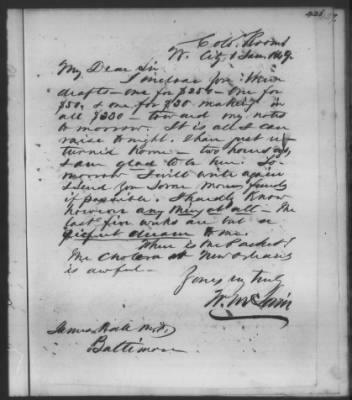 Col. Rooms
W. City, 1 Jan. 1849.
My Dear Sir
I inclose you three
drafts — one for $250 — one for
$50, & one for $30 making in
all $330 — toward my notes
to morrow. It is all I can
raise to night. I have just re-
turned home — two hours ago,
I am glad to be here. To-
morrow I will write again
& send you some more funds
if possible. I hardly know
however any thing at all — The
last five weeks are but a
perfect dream to me.
Where is the Packet?
The cholera at New Orleans
is awful —
Yours very truly
James Hall M.D.
Baltimore